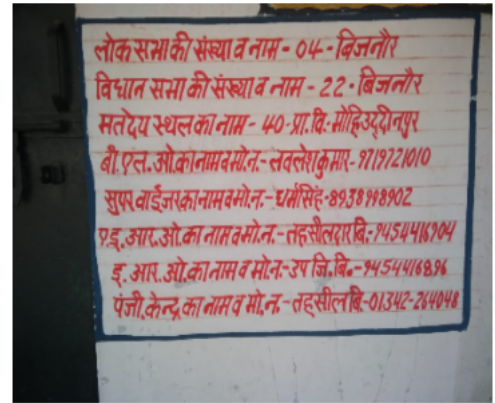 लोक सभा की संख्या व नाम - 04 - बिजनौर
विधान सभा की संख्या व नाम - 22 - बिजनौर
मतदेय स्थल का नाम - 40 - प्रा. वि. - मोहिउद्दीनपुर
बी. एल. ओ. का नाम व मो. न. - लवलेश कुमार - 9719721010
सुपरवाईजर का नाम व मो. न. - धर्मसिंह - 8938998902
ए. इ. आर. ओ. का नाम व मो. न. - तहसीलदार बि. - 9454416904
इ. आर. ओ. का नाम व मो. न. - उप जि. बि. - 9454416896
पंजी. केन्द्र का नाम व मो. न. - तहसील बि. - 01342-264048